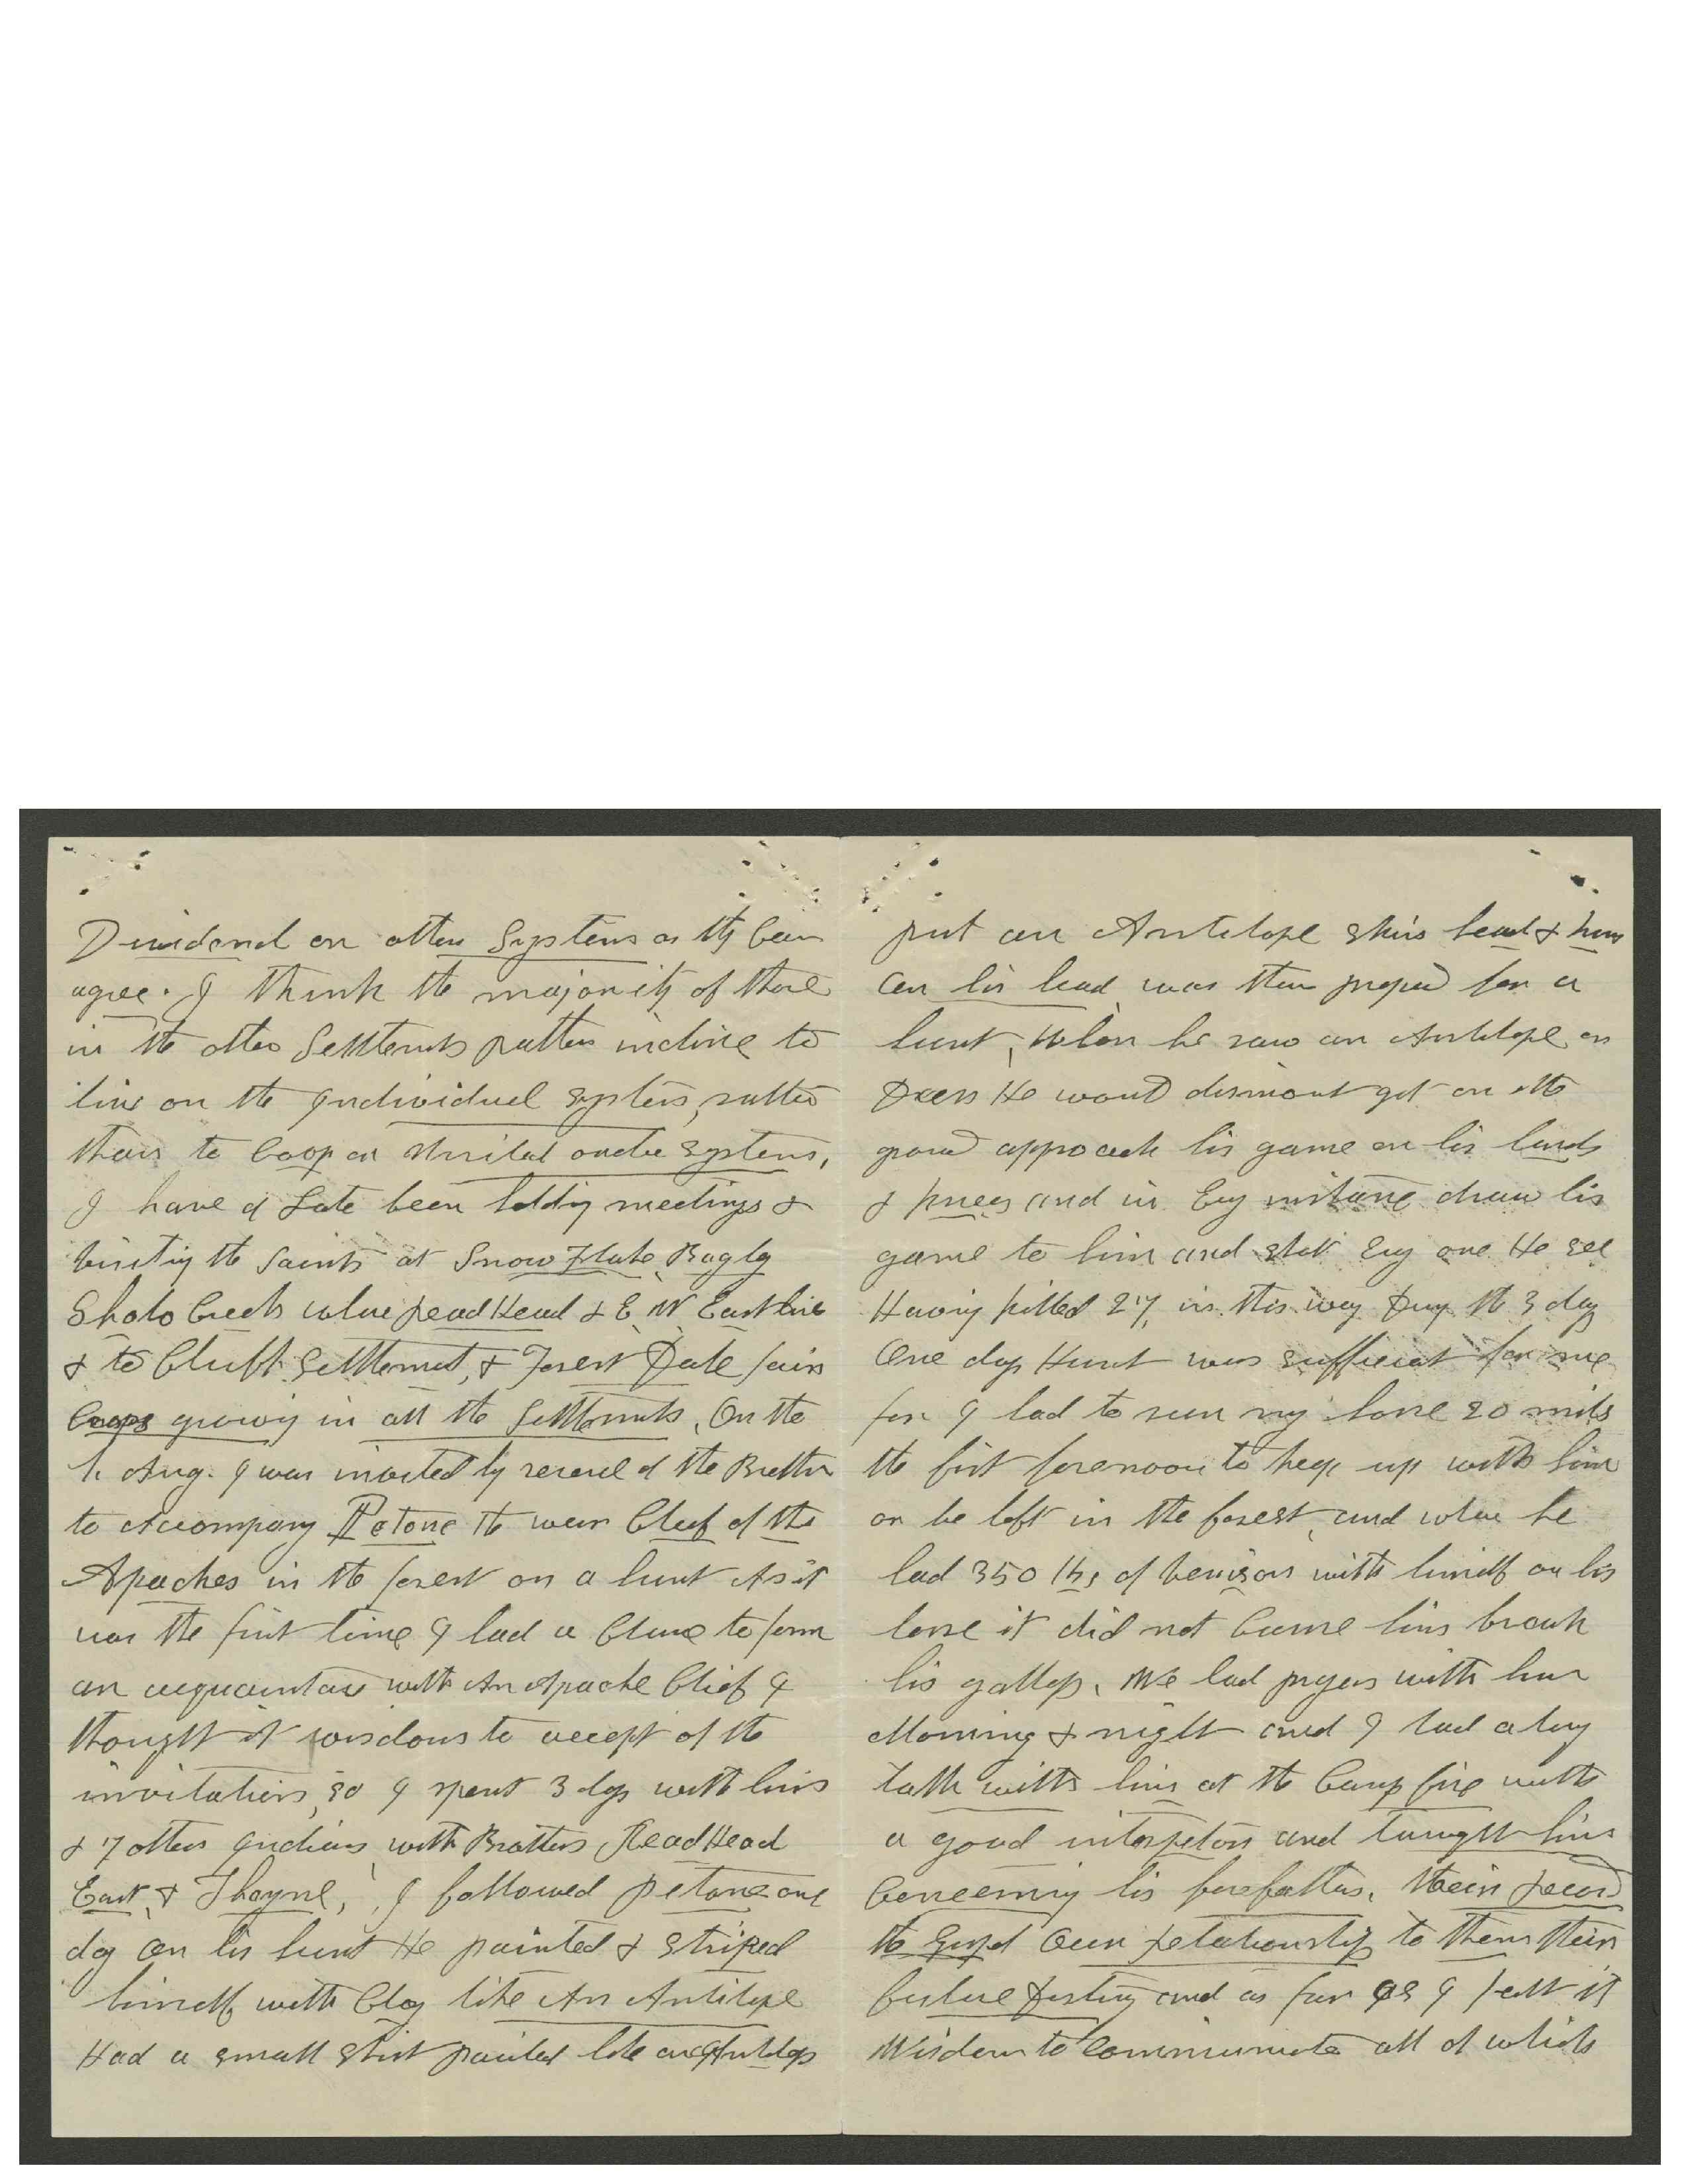 Dividend on other Systems as they Can
agree. I think the majority of those
in the other Settlemts rather incline to
live on the Individual System, rather
than to Coop or United order System,
I have of Late been holding meetings &
visiting the Saints at Snow Flake, Bagly
Sholo Creek whare Read Head & E. W. East live
& to Cluff Settlemnt, & Forest Dale fair
Crops growing in all the Settlemnts, On the
Aug. I was invited by several of the Brethr
to accompany Petone the war Cheef of the
Apaches in the forest on a hunt As it
was the first time I had a Chance to form
an acquaintance with An Apache Chief I
thought it wisdom to accept of the
invitation, so I spent 3 days with him
& 7 other Indians with Brothers Read Head
East, & Thayne, I followed Petone one
day on his hunt He painted & Striped
himself with Clay like An Antilope
Had a small Shirt painted like an Antilop
put an Antelope skin head & horns
on his head was then prepared for a
hunt, When he saw an Antelope or
Deer He would dismount get on the
ground approach his game on his hands
& knees and in Evry instance draw his
game to him and shot Evry one He see
Having killed 27, in this way During the 3 day
One days Hunt was sufficient for me
for I had to run my horse 20 mils
the first forenoon to keep up with him
or be left in the forest, and when he
had 350 lbs of venison with himself on his
horse it did not Cause him break
his gallop. We had prayers with him
Morning & night and I had a long
talk with him at the Camp fire with
a good interpeter and taught him
Concerning his forefathers, their record
the Gospel Our relationship to them their
future Destiny and as far as I felt it
Wisdom to Communicate all of which